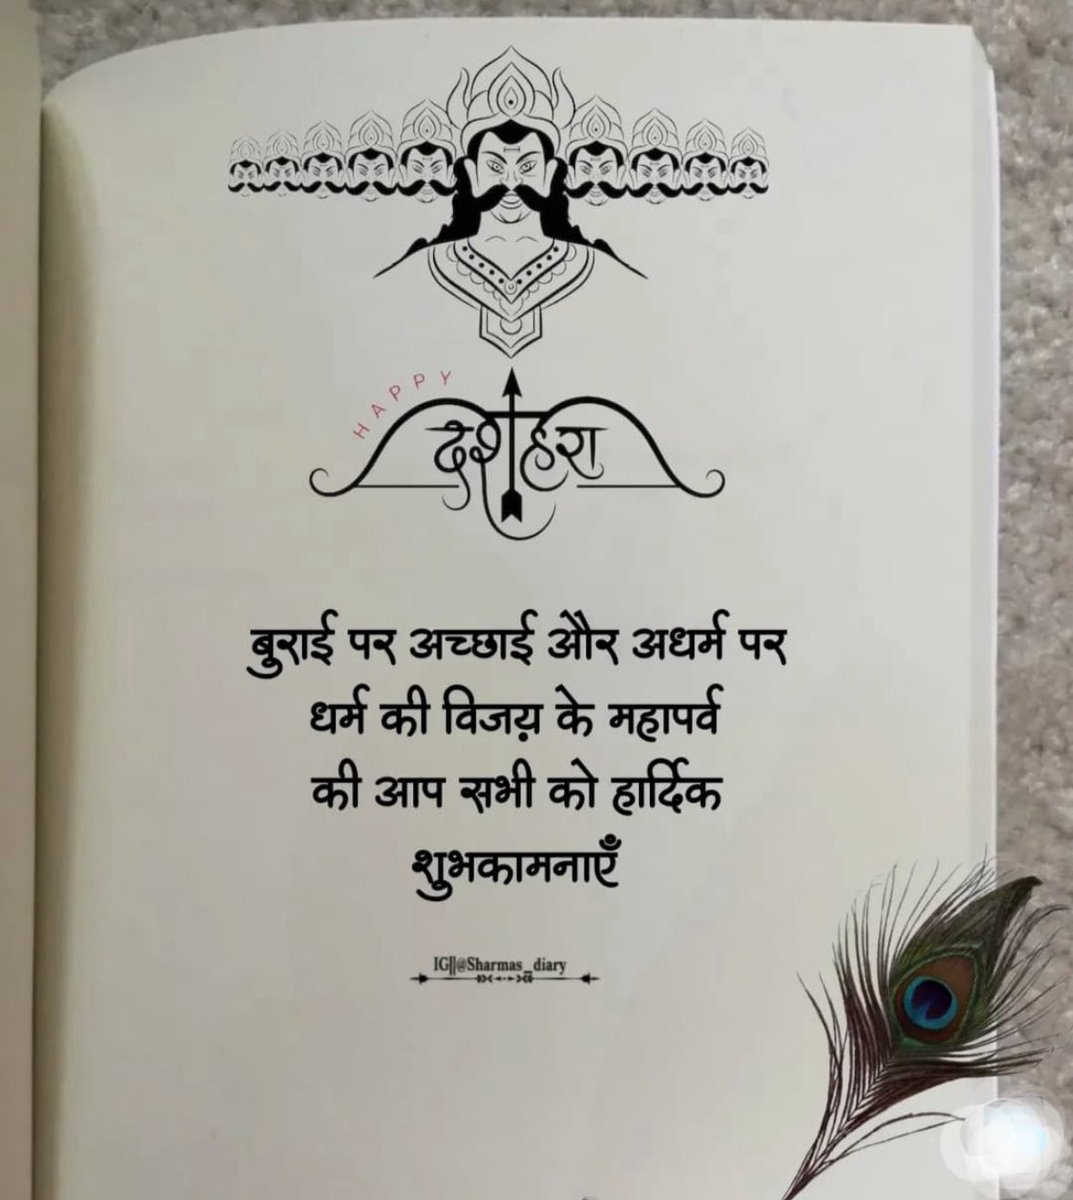 HAPPY
दशहरा
बुराई पर अच्छाई और अधर्म पर
धर्म की विजय़ के महापर्व
की आप सभी को हार्दिक
शुभकामनाएँ
IG||@Sharmas_diary